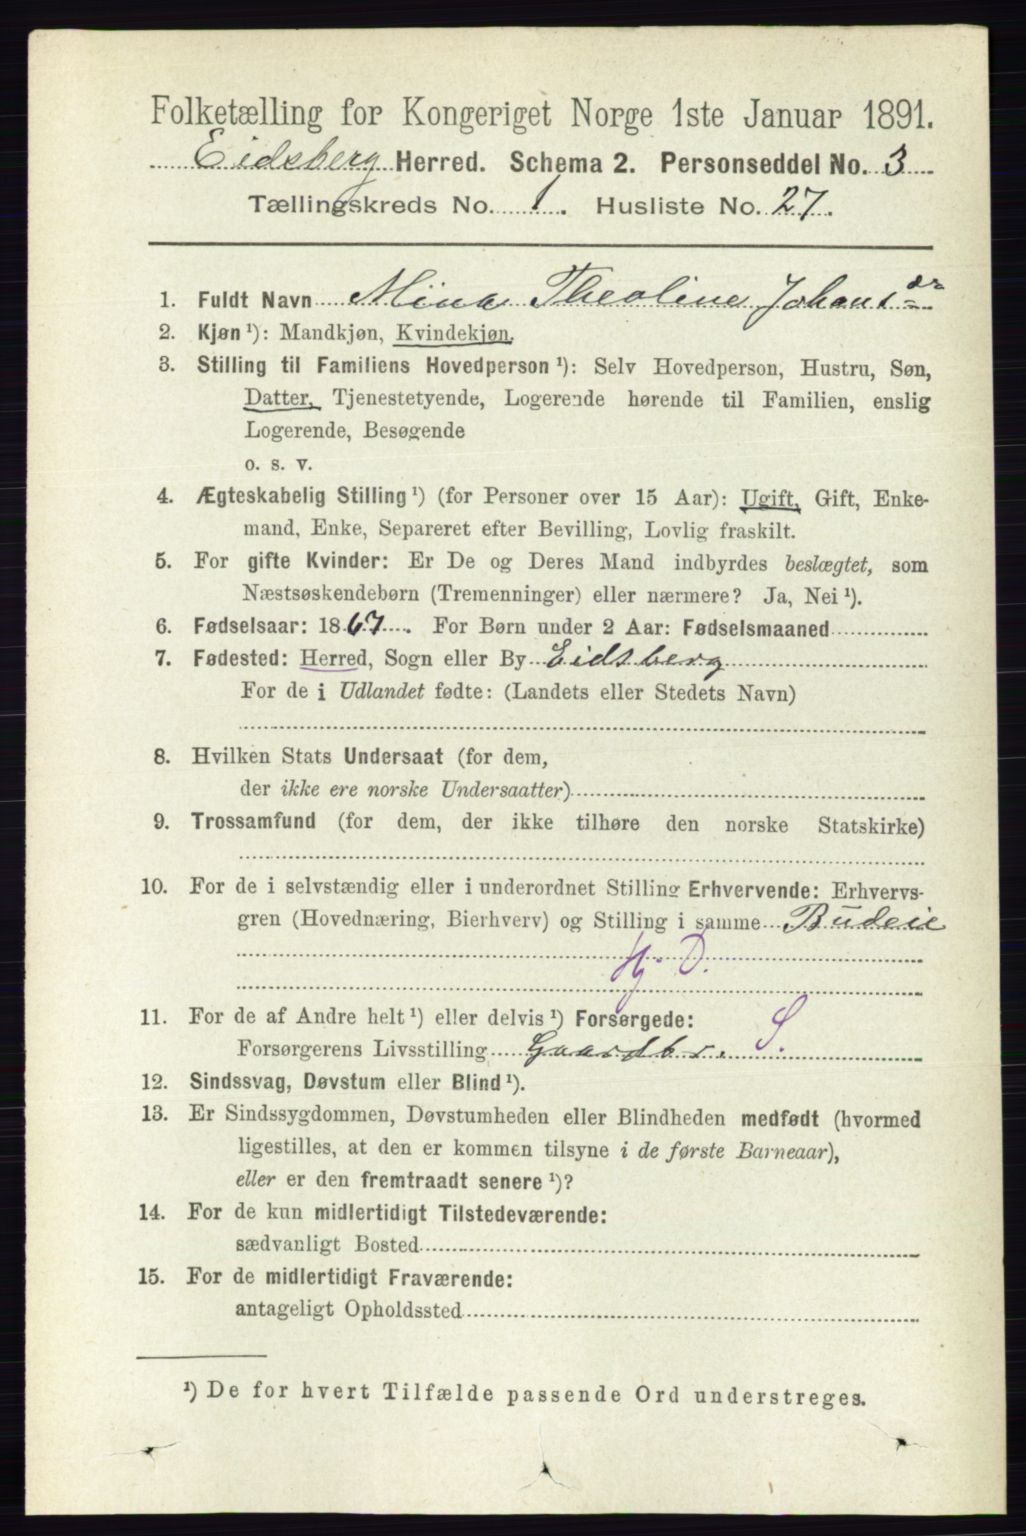 Folketælling for Kongeriget Norge 1ste Januar 1891.
Eidsberg Herred. Schema 2. Personseddel No. 3
Tællingskreds No. 1. Husliste No. 27.
1. Fuldt Navn Mina Theoline Johansdr
2. Kjøn ¹): Mandkjøn, Kvindekjøn.
3. Stilling til Familiens Hovedperson ¹): Selv Hovedperson, Hustru, Søn,
Datter, Tjenestetyende, Logerende hørende til Familien, enslig
Logerende, Besøgende
o. s. v.
4. Ægteskabelig Stilling ¹) (for Personer over 15 Aar): Ugift, Gift, Enke-
mand, Enke, Separeret efter Bevilling, Lovlig fraskilt.
5. For gifte Kvinder: Er De og Deres Mand indbyrdes beslægtet, som
Næstsøskendebørn (Tremenninger) eller nærmere? Ja, Nei ¹).
6. Fødselsaar: 1867. For Børn under 2 Aar: Fødselsmaaned
7. Fødested: Herred, Sogn eller By Eidsberg
For de i Udlandet fødte: (Landets eller Stedets Navn)
8. Hvilken Stats Undersaat (for dem,
der ikke ere norske Undersaatter)
9. Trossamfund (for dem, der ikke tilhøre den norske Statskirke)
10. For de i selvstændig eller i underordnet Stilling Erhvervende: Erhvervs-
gren (Hovednæring, Bierhverv) og Stilling i samme Budeie
Hj. D.
11. For de af Andre helt ¹) eller delvis ¹) Forsørgede: S.
Forsørgerens Livsstilling Gaardbr.
12. Sindssvag, Døvstum eller Blind ¹).
13. Er Sindssygdommen, Døvstumheden eller Blindheden medfødt (hvormed
ligestilles, at den er kommen tilsyne i de første Barneaar),
eller er den fremtraadt senere ¹)?
14. For de kun midlertidigt Tilstedeværende:
sædvanligt Bosted
15. For de midlertidigt Fraværende:
antageligt Opholdssted
¹) De for hvert Tilfælde passende Ord understreges.